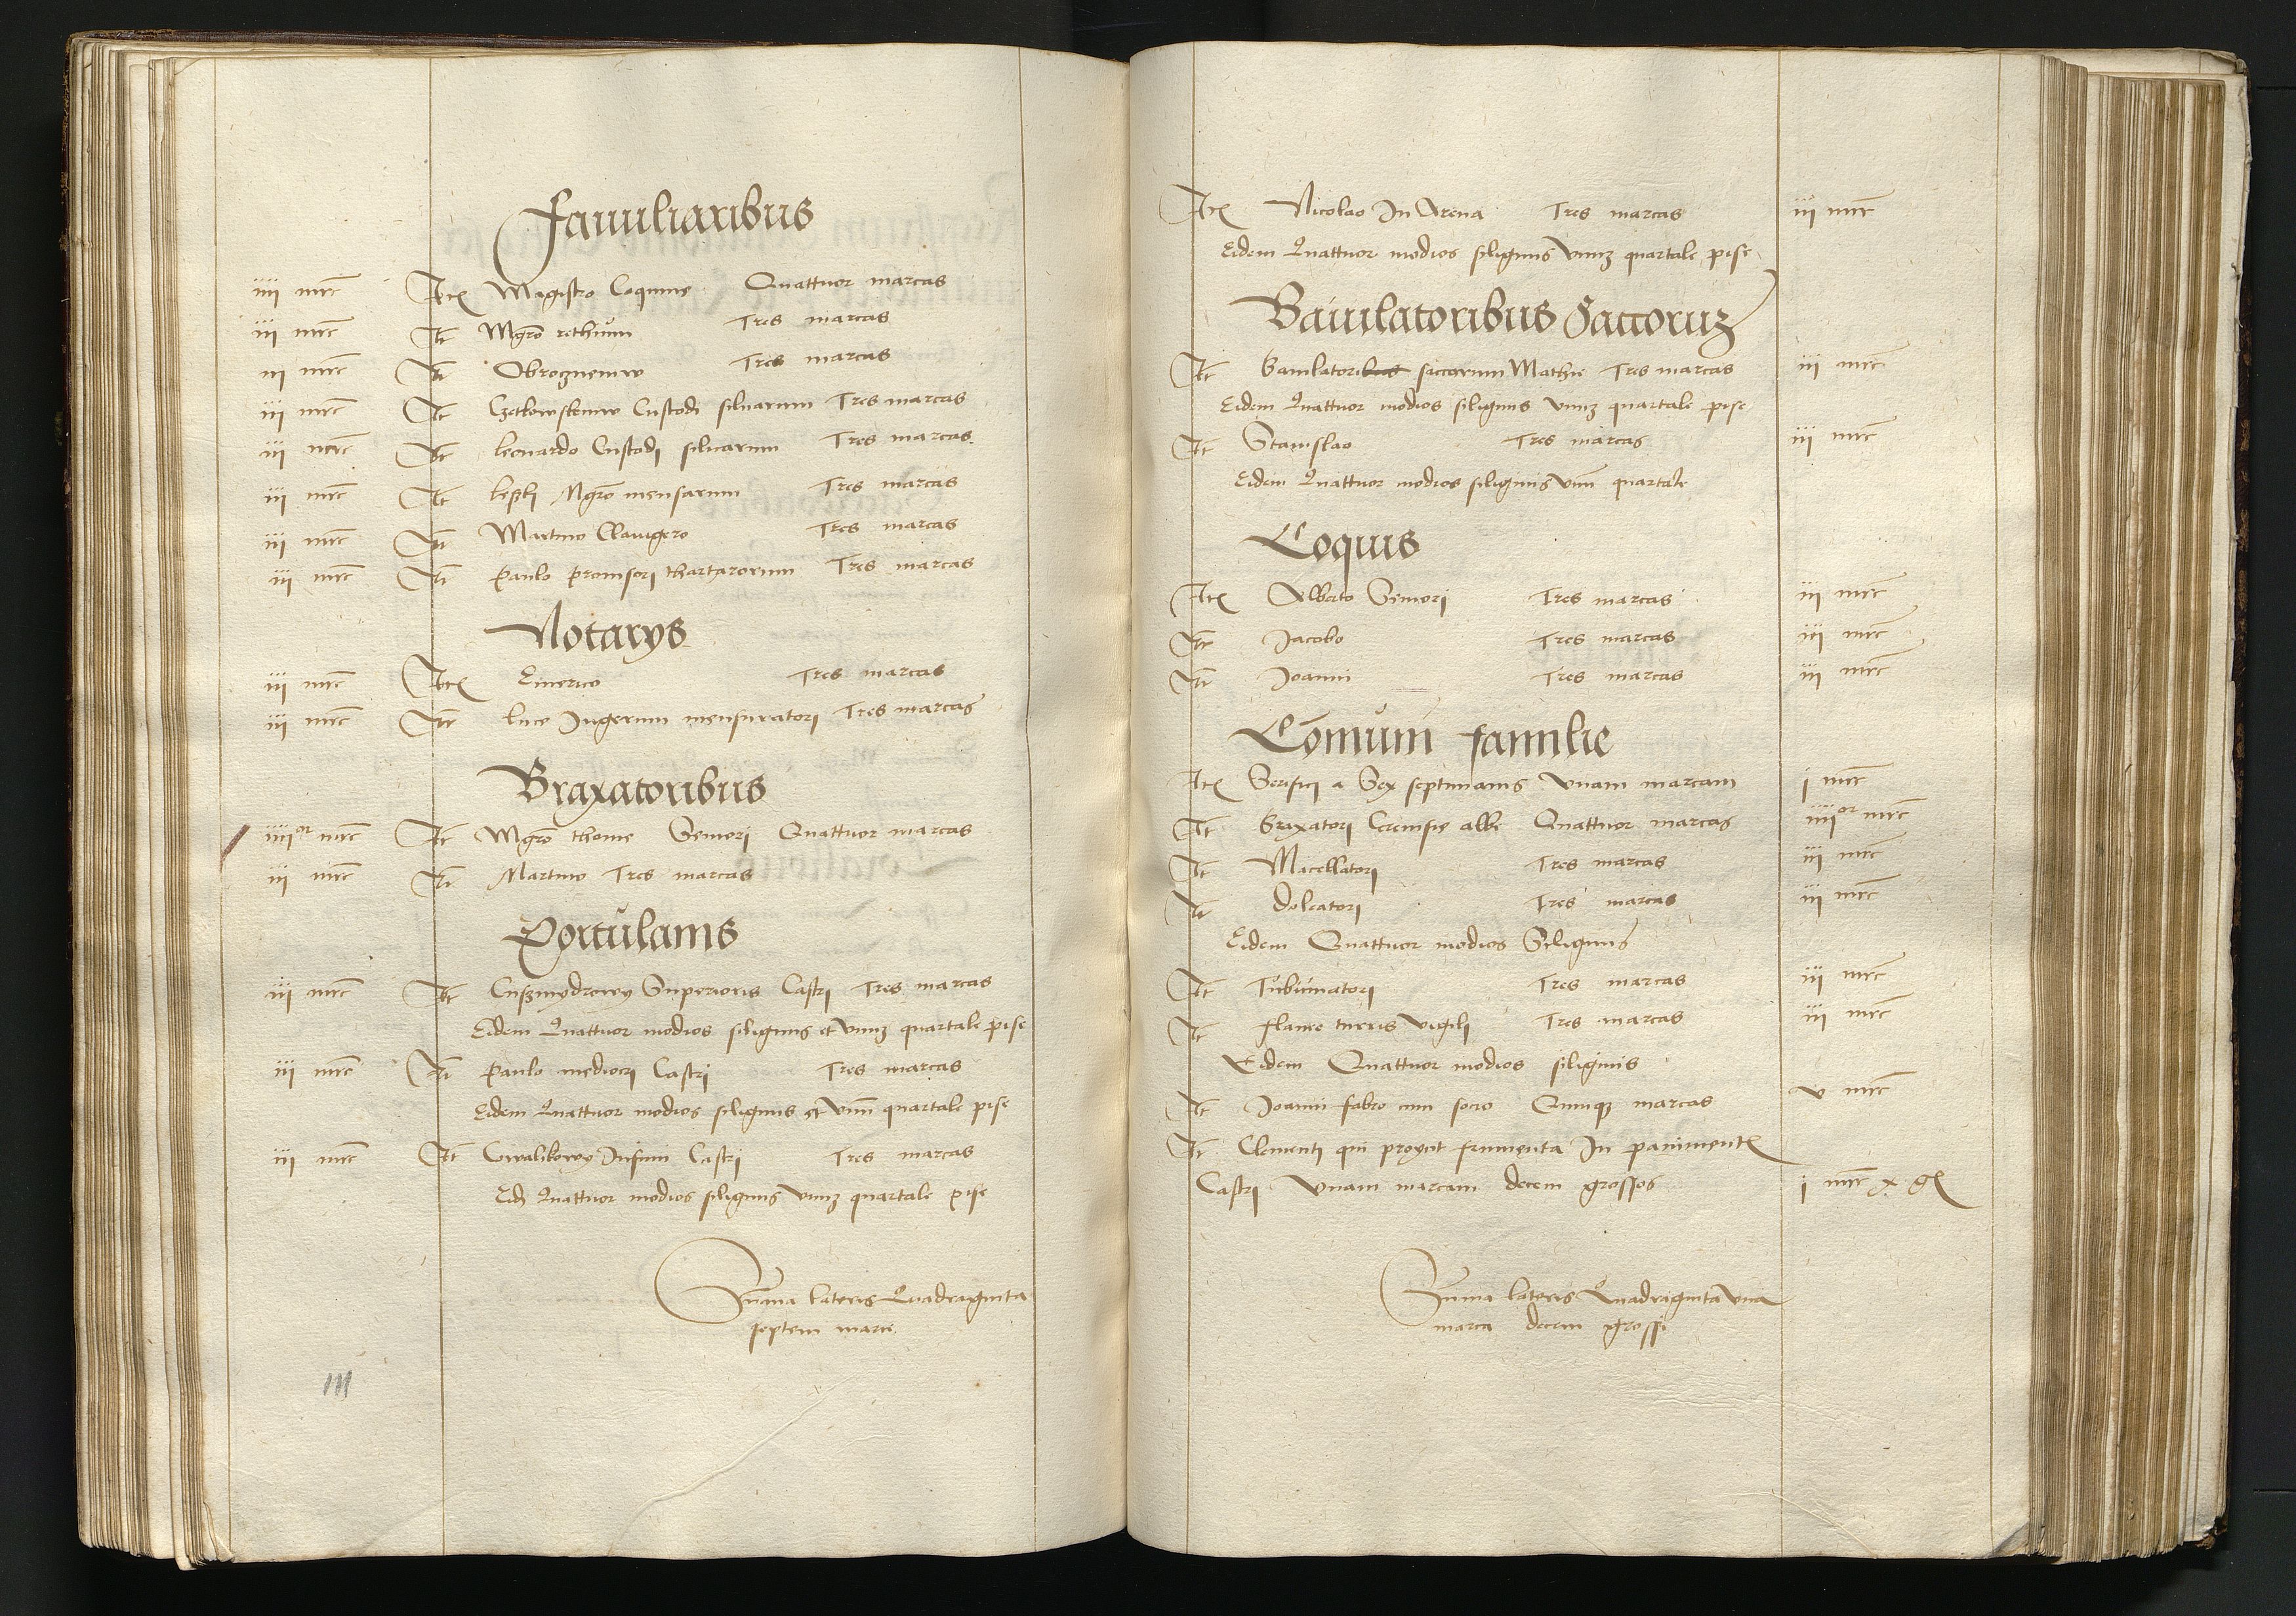 Familiaribus
iiii mrc Itē Magistro Coquine Quattuor marcas
iii mrc It Mgro rethium Tres marcas
iii mrc It Obrocznemw Tres marcas
iii mrc It Czetkowskemw Custodi siluarum Tres marcas
iii mrc It leonardo Custodj siluarum Tres marcas
iii mrc It Mgro mensarum Tres marcas
iii mrc It Martino Clauigero Tres marcas
iii mrc It Paulo prouisori Tres marcas
Notarys
iii mrc Itē Emerico Tres marcas
iii mrc It luce Jugerum mensuratorj Tres marcas
Braxatoribus
iiiior mrc It Mgro thome Seniori Quattuor marcas
iii mrc It Martino Tres marcas
Portulanis
iii mrc It Superioris Castrj Tres marcas
Eidem Quattuor modios siliginis et vnuʒ quartale pise
iii mrc It Paulo mediocrj Castrj Tres marcas
Eidem Quattuor modios siliginis et vnū quartale pise
iii mrc It Infimi Castrj Tres marcas
Eidʒ Quattuor modios siliginis vnuʒ quartale pise
Summa lateris Quadraginta
septem marc
111
Itē Nicolao In Arena Tres marcas iii mrc
Eidem Quattuor modios siliginis vnuʒ quartale pise
Baiulatoribus Saccoruʒ
It baiulatoribus saccorum Mathie Tres marcas iii mrc
Eidem Quattuor modios siliginis vnuʒ quartale pise
It Stanislao Tres marcas iii mrc
Eidem Quattuor modios siliginis vnū quartale
Coquis
Itē Alberto Seniorj Tres marcas iii mrc
It Jacobo Tres marcas iii mrc
It Joanni Tres marcas iii mrc
Cōmuni familie
Itē a Sex septimanis vnam marcam j mrc
It braxatori Cereuisie albe Quattuor marcas iiiior mrc
It Macellatorj Tres marcas iii mrc
It doleatorj Tres marcas iii mrc
Eidem Quattuor modios Siliginis
It Tubicinatorj Tres marcas iii mrc
It turris vigilj Tres marcas iii mrc
Eidem Quattuor modios siliginis
It Joanni fabro cum socio Quinqʒ marcas v mrc
It Clementj qui frumenta In pauimentē
Castrj vnam marcam decem grossos j mrc x gē
Summa lateris Quadraginta vna
marca decem grossi